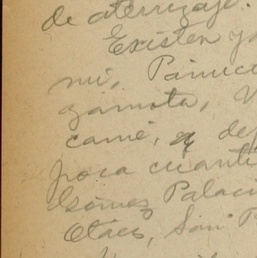 de aterrizaje.
Existen y
mi, Pánuc
zamota,
came, y de
poca cuanti
Gómez Palaci
Otáes, San